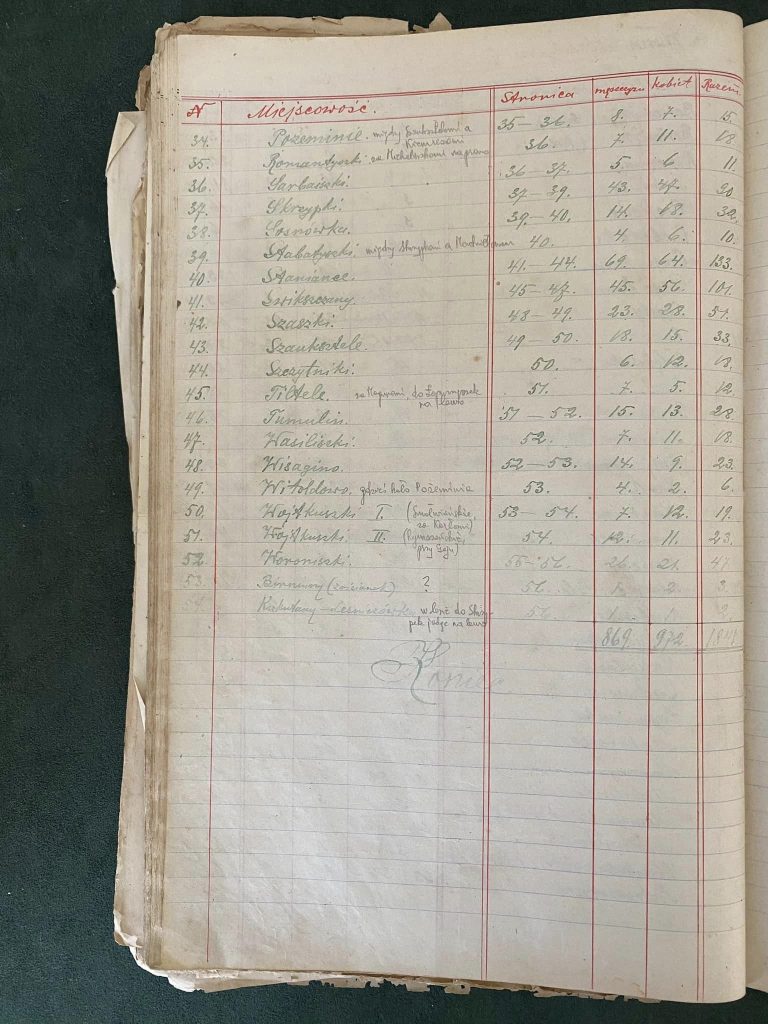 N Miejscowość. Stronica mężczyzn kobiet Razem
34. Pożeminie. między a 35–36. 8. 7. 15.
35. Romantyszki za Michelinkami naprawo 36. 7. 11. 18.
36. Sarbaiszki. 36–37. 5. 6 11.
37. Skrzypki. 37–39. 43. 47. 90.
38. Sosnówka. 39–40. 14. 18. 32.
39. Stabatyszki. między Skrzypkami a 40. 4. 6. 10.
40. Staniance. 41.–44. 69. 64. 133.
41. Swikszczany. 45–47. 45. 56. 101.
42. Szaszki. 48–49. 23. 28. 51.
43. Szauksztele. 49–50. 18. 15. 33.
44. Szczytniki. 50. 6. 12. 18.
45. Tiltele. za do 51. 7. 5. 12
na lewo
46. Tumulin. 51–52. 15. 13. 28.
47. Wasiliszki. 52. 7. 11. 18.
48. Wisagino. 52–53. 14. 9. 23.
49. Witoldowo, gdzieś koło Pożeminia 53. 4. 2. 6.
50. Wojtkuszki I. 53–54. 7. 12. 19.
51. Wojtkuszki II. 54. 12. 11. 23.
52. Woroniszki. 55–56. 26. 21. 47.
53 (zaścianek) ? 56. 1. 2. 3.
54 Karkutany – Leśniczówka 56 1. 1. 2.
jadąc na lewo
869. 972. 1841
Koniec